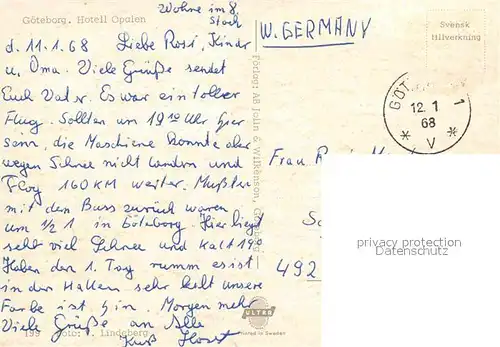 Göteborg. Hotell Opalen
Wohne im 8.
Stock
W. GERMANY
Svensk
tillverkning
d. 11.1.68 Liebe Rosi, Kinder
u. Oma. Viele Grüße sendet
Euch Vater. Es war ein toller
Flug. Sollten um 19 10 Uhr hier
sein, die Maschiene konnte aber
wegen Schnee nicht landen und
Flog 160 KM weiter. Mußten
mit dem Buss zurück waren
um 1/2 1 in Göteborg. Hier liegt
sehr viel Schnee und Kalt 19°
Haben den 1. Tag rumm es ist
in der Hallen sehr kalt unsere
Farbe ist hin. Morgen mehr
Viele Grüße an Alle
Kuß Horst
Förlag: AB Jolin & Wilkenson,
GÖT 1
12. 1
68
* V *
Frau
492
privacy protection
Datenschutz
199 Foto: Lindberg
ULTRA
Printed in Sweden